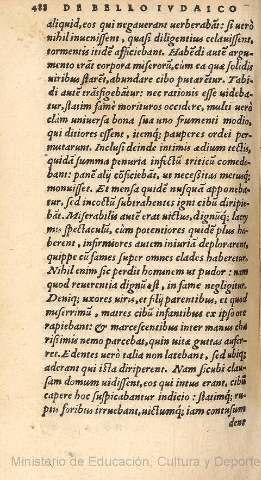 488 DE BELLO IVDAICO
aliquid, eos qui negauerant verberabāt: si uerò
nihil inuenissent, quasi diligentius celauissent,
tormentis indè afficiebant. Habēdi autē argu-
mento erāt corpora miserorū, cùm ea quæ solidis
viribus starēt, abundare cibo putarētur. Tabi-
di autē trāsfigebātur: nec rationis esse videba-
tur, statim fame morituros occidere, multi uerò
clàm vniuersa bona sua uno frumenti modio,
qui ditiores essent, itemq́; pauperes ordei per-
mutarunt. Inclusi deinde intimis ædium tectis,
quidā summa penuria infectū triticū comede-
bant: panē alij cōficiebāt, ut necesitas metusq́;
monuisset. Et mensa quidē nusquā apponeba-
tur, sed incoctū subtrahentes igni cibū diripie-
bā. Miserabilis autē erat uictus, dignūq́; lacry
mis spectaculū, cùm potentiores quidē plus ha-
berent, infirmiores autem iniuria deplorarent,
quippe cū fames super omnes clades haberetur.
Nihil enim sic perdit hominem ut pudor: nam
quod reuerentia dignū est, in fame negligitur.
Deniq́; uxores viris, et filij parentibus, et quod
miserrimū, matres cibū infantibus ex ipso ore
rapiebant: & marcescentibus inter manus cha
rissimis nemo parcebat, quin vitæ guttas aufer-
ret. Edentes uerò talia non latebant, sed ubiq́;
aderant qui ista diriperent. Nam sicubi clau-
sam domum uidissent, eos qui intus erant, cibū
capere hoc suspicabantur indicio: statimq́; ru-
ptis foribus irruebant, uictumq́; iam contusum
dent
Ministerio de Educación, Cultura y Deporte